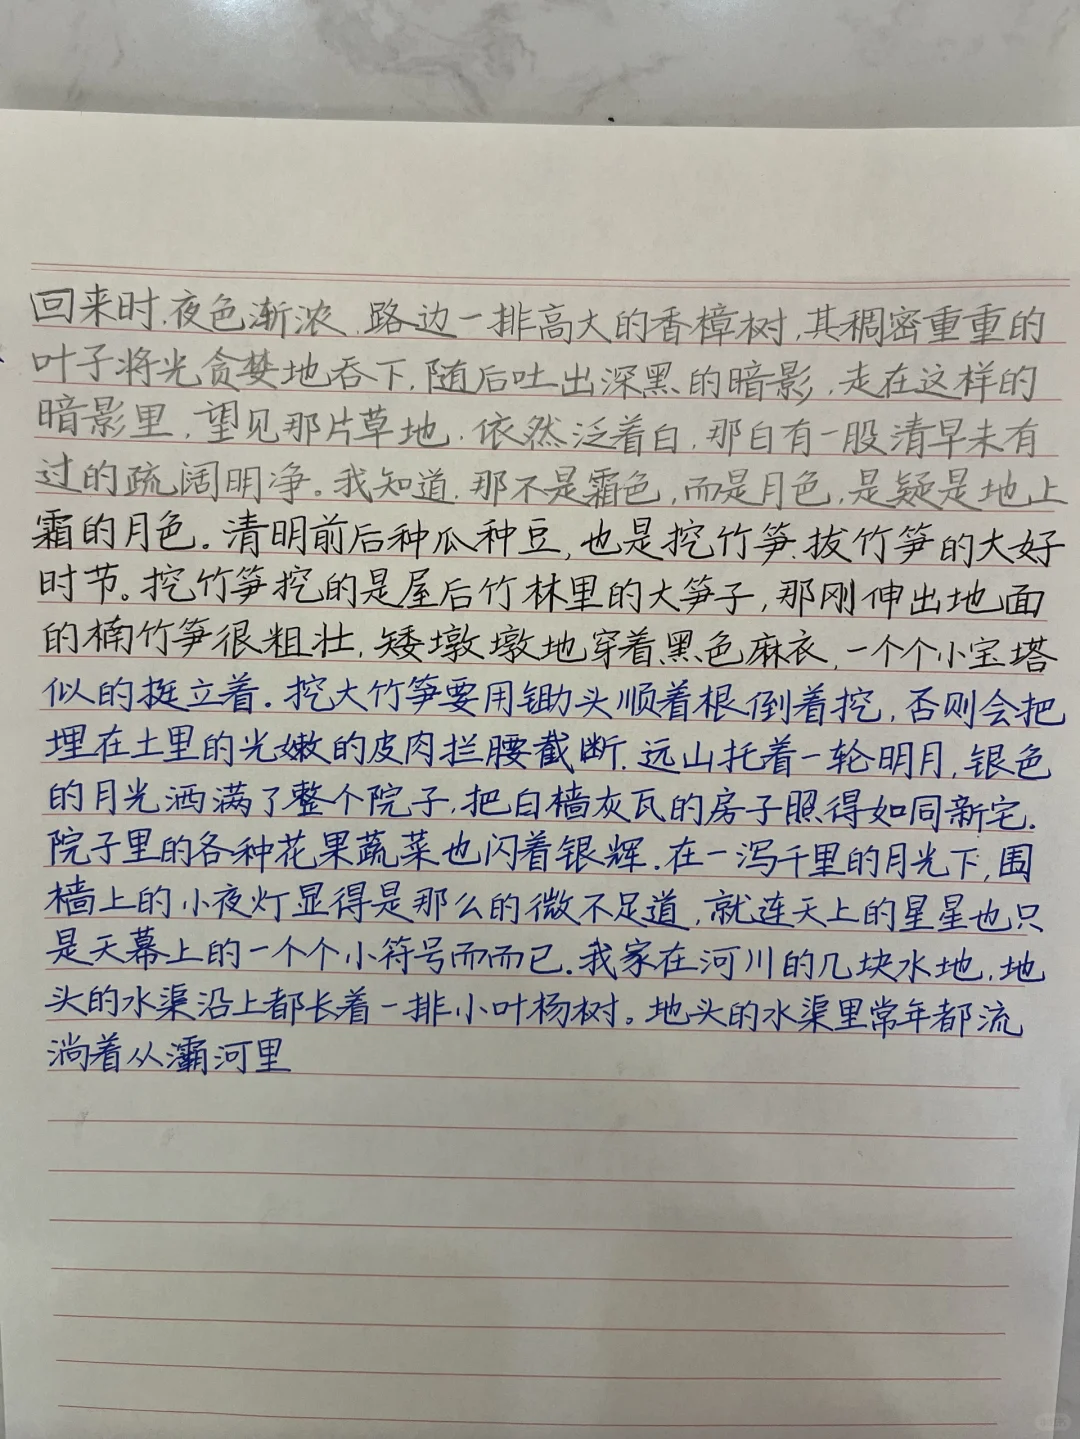 回来时,夜色渐浓,路边一排高大的香樟树,其稠密重重的
叶子将光贪婪地吞下,随后吐出深黑的暗影,走在这样的
暗影里,望见那片草地,依然泛着白,那白有一股清早未有
过的疏阔明净。我知道,那不是霜色,而是月色,是疑是地上
霜的月色。清明前后种瓜种豆,也是挖竹笋、拔竹笋的大好
时节。挖竹笋挖的是屋后竹林里的大笋子,那刚伸出地面
的楠竹笋很粗壮,矮墩墩地穿着黑色麻衣,一个个小宝塔
似的挺立着。挖大竹笋要用锄头顺着根倒着挖,否则会把
埋在土里的光嫩的皮肉拦腰截断.远山托着一轮明月,银色
的月光洒满了整个院子,把白墙灰瓦的房子照得如同新宅.
院子里的各种花果蔬菜也闪着银辉.在一泻千里的月光下,围
墙上的小夜灯显得是那么的微不足道,就连天上的星星也只
是天幕上的一个个小符号而而已.我家在河川的几块水地,地
头的水渠沿上都长着一排小叶杨树。地头的水渠里常年都流
淌着从灞河里